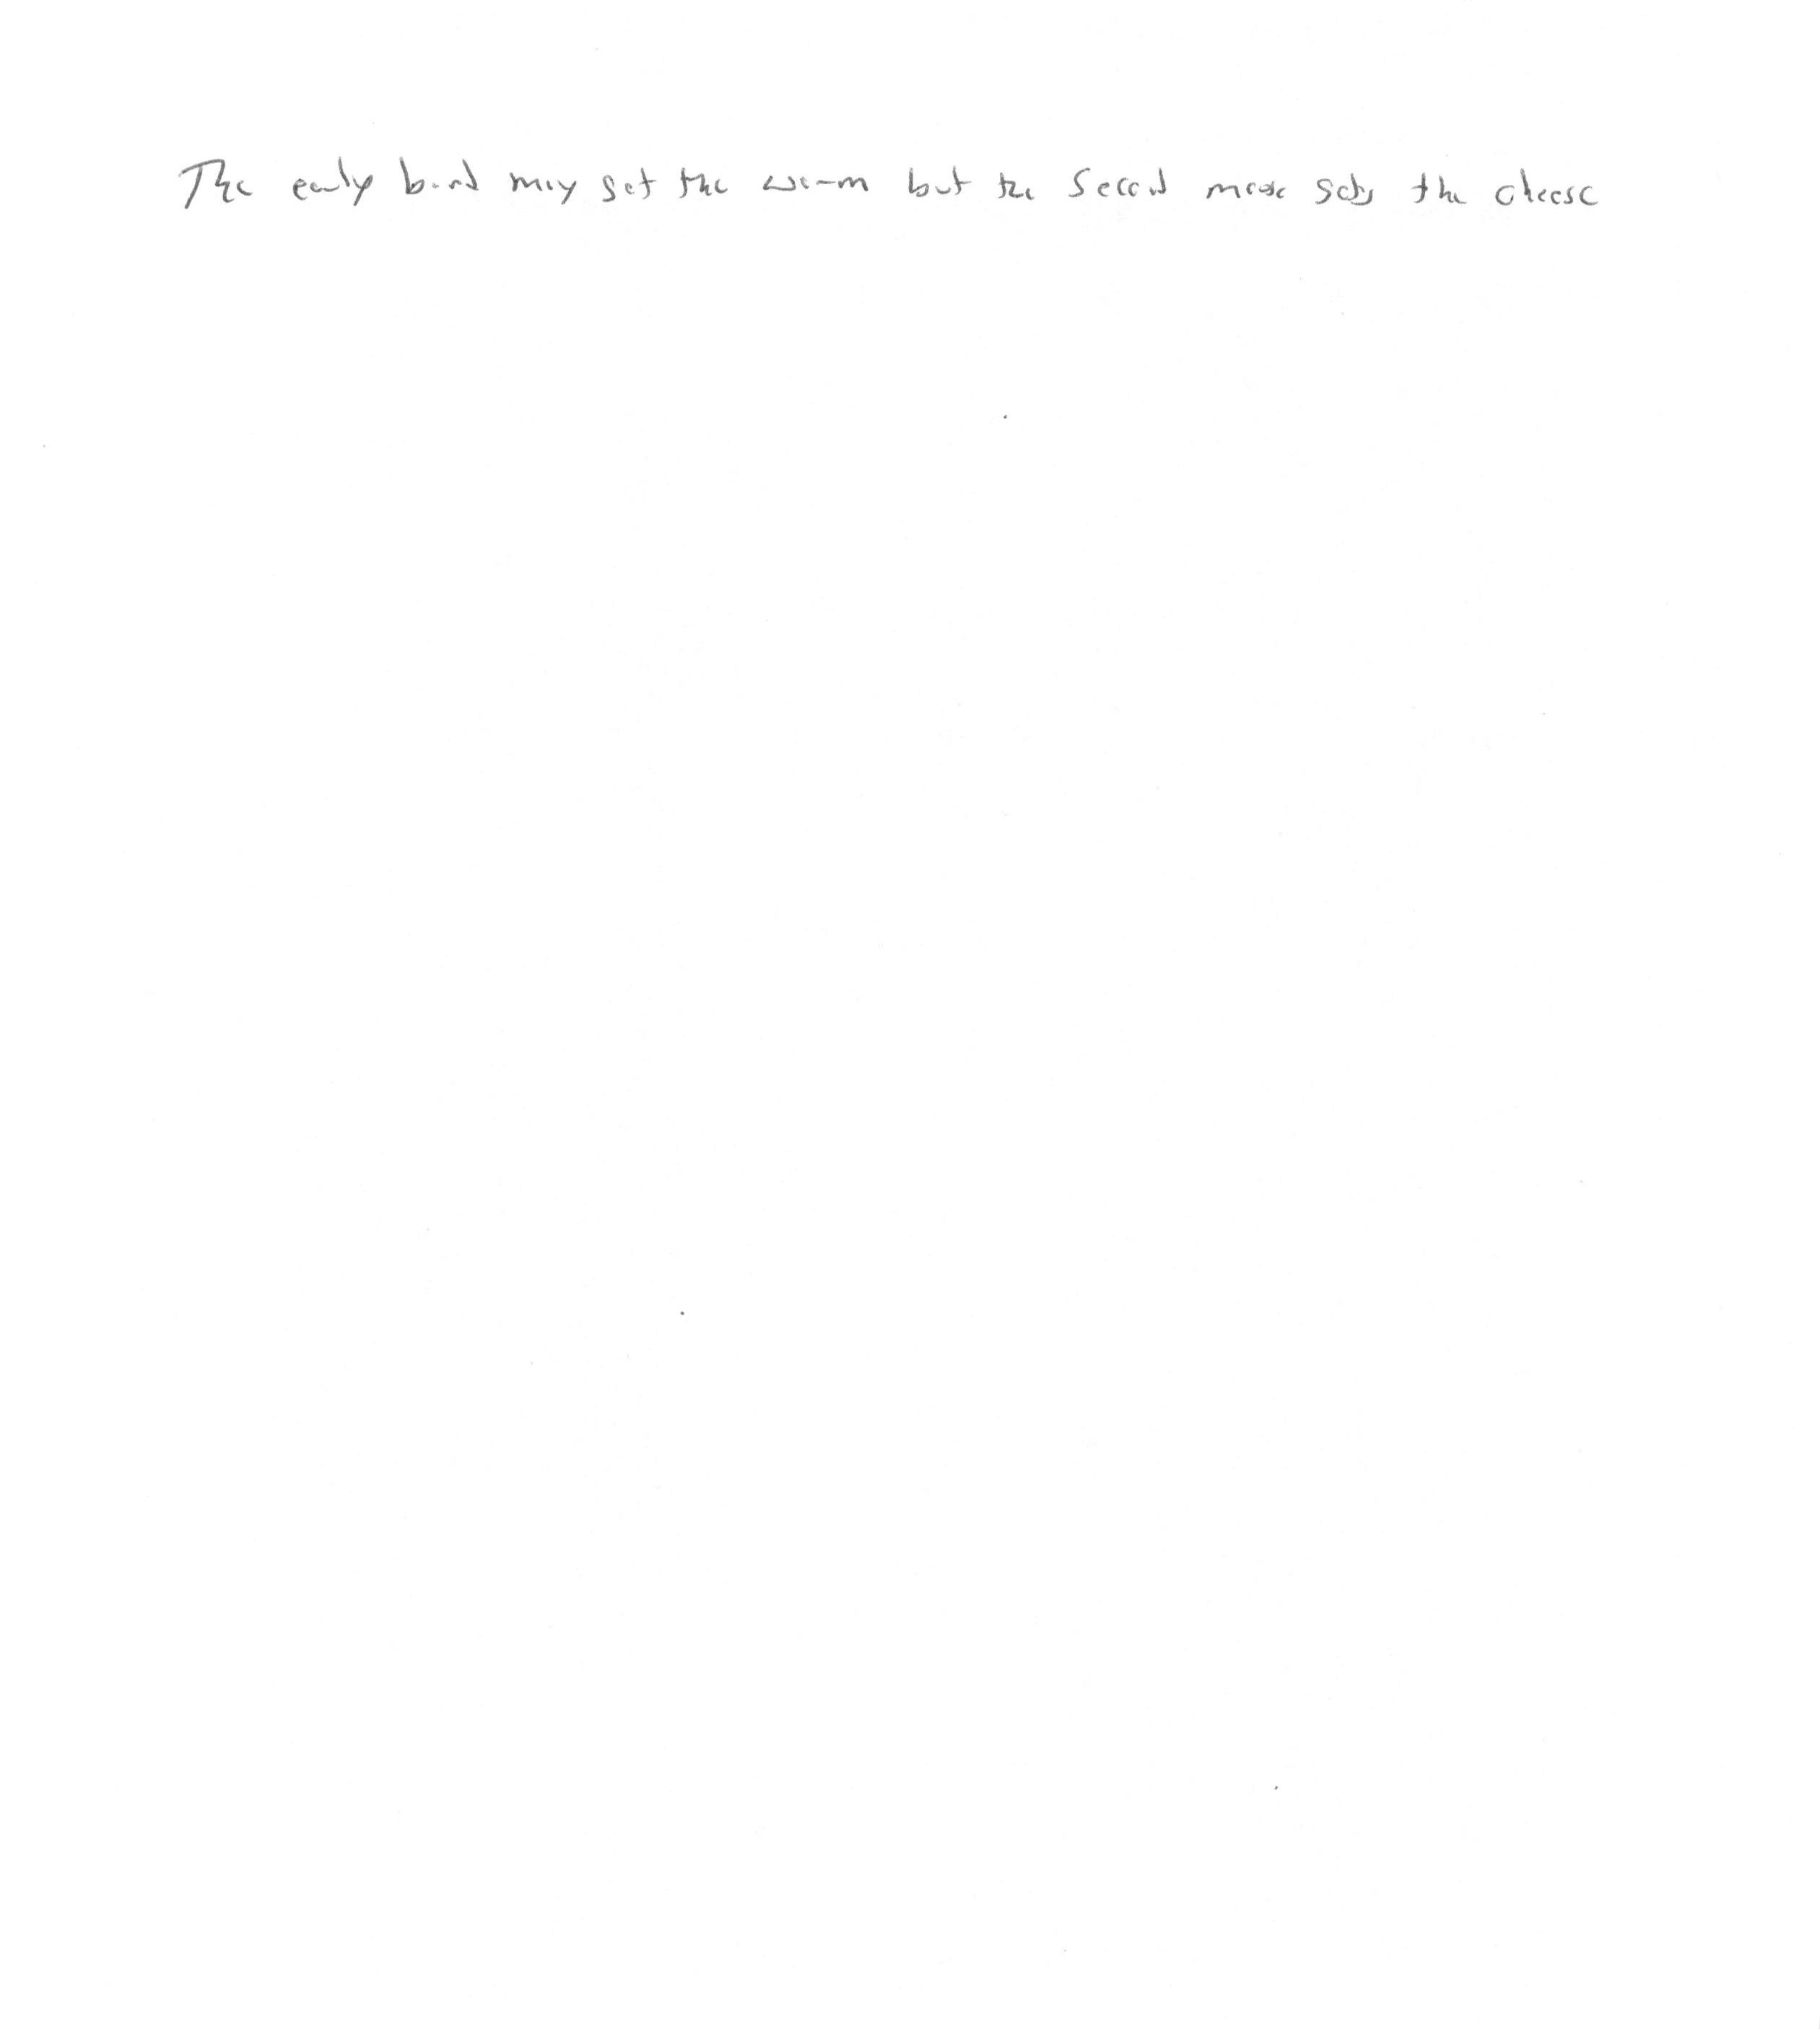 The early bird may get the worm but the second mouse gets the cheese